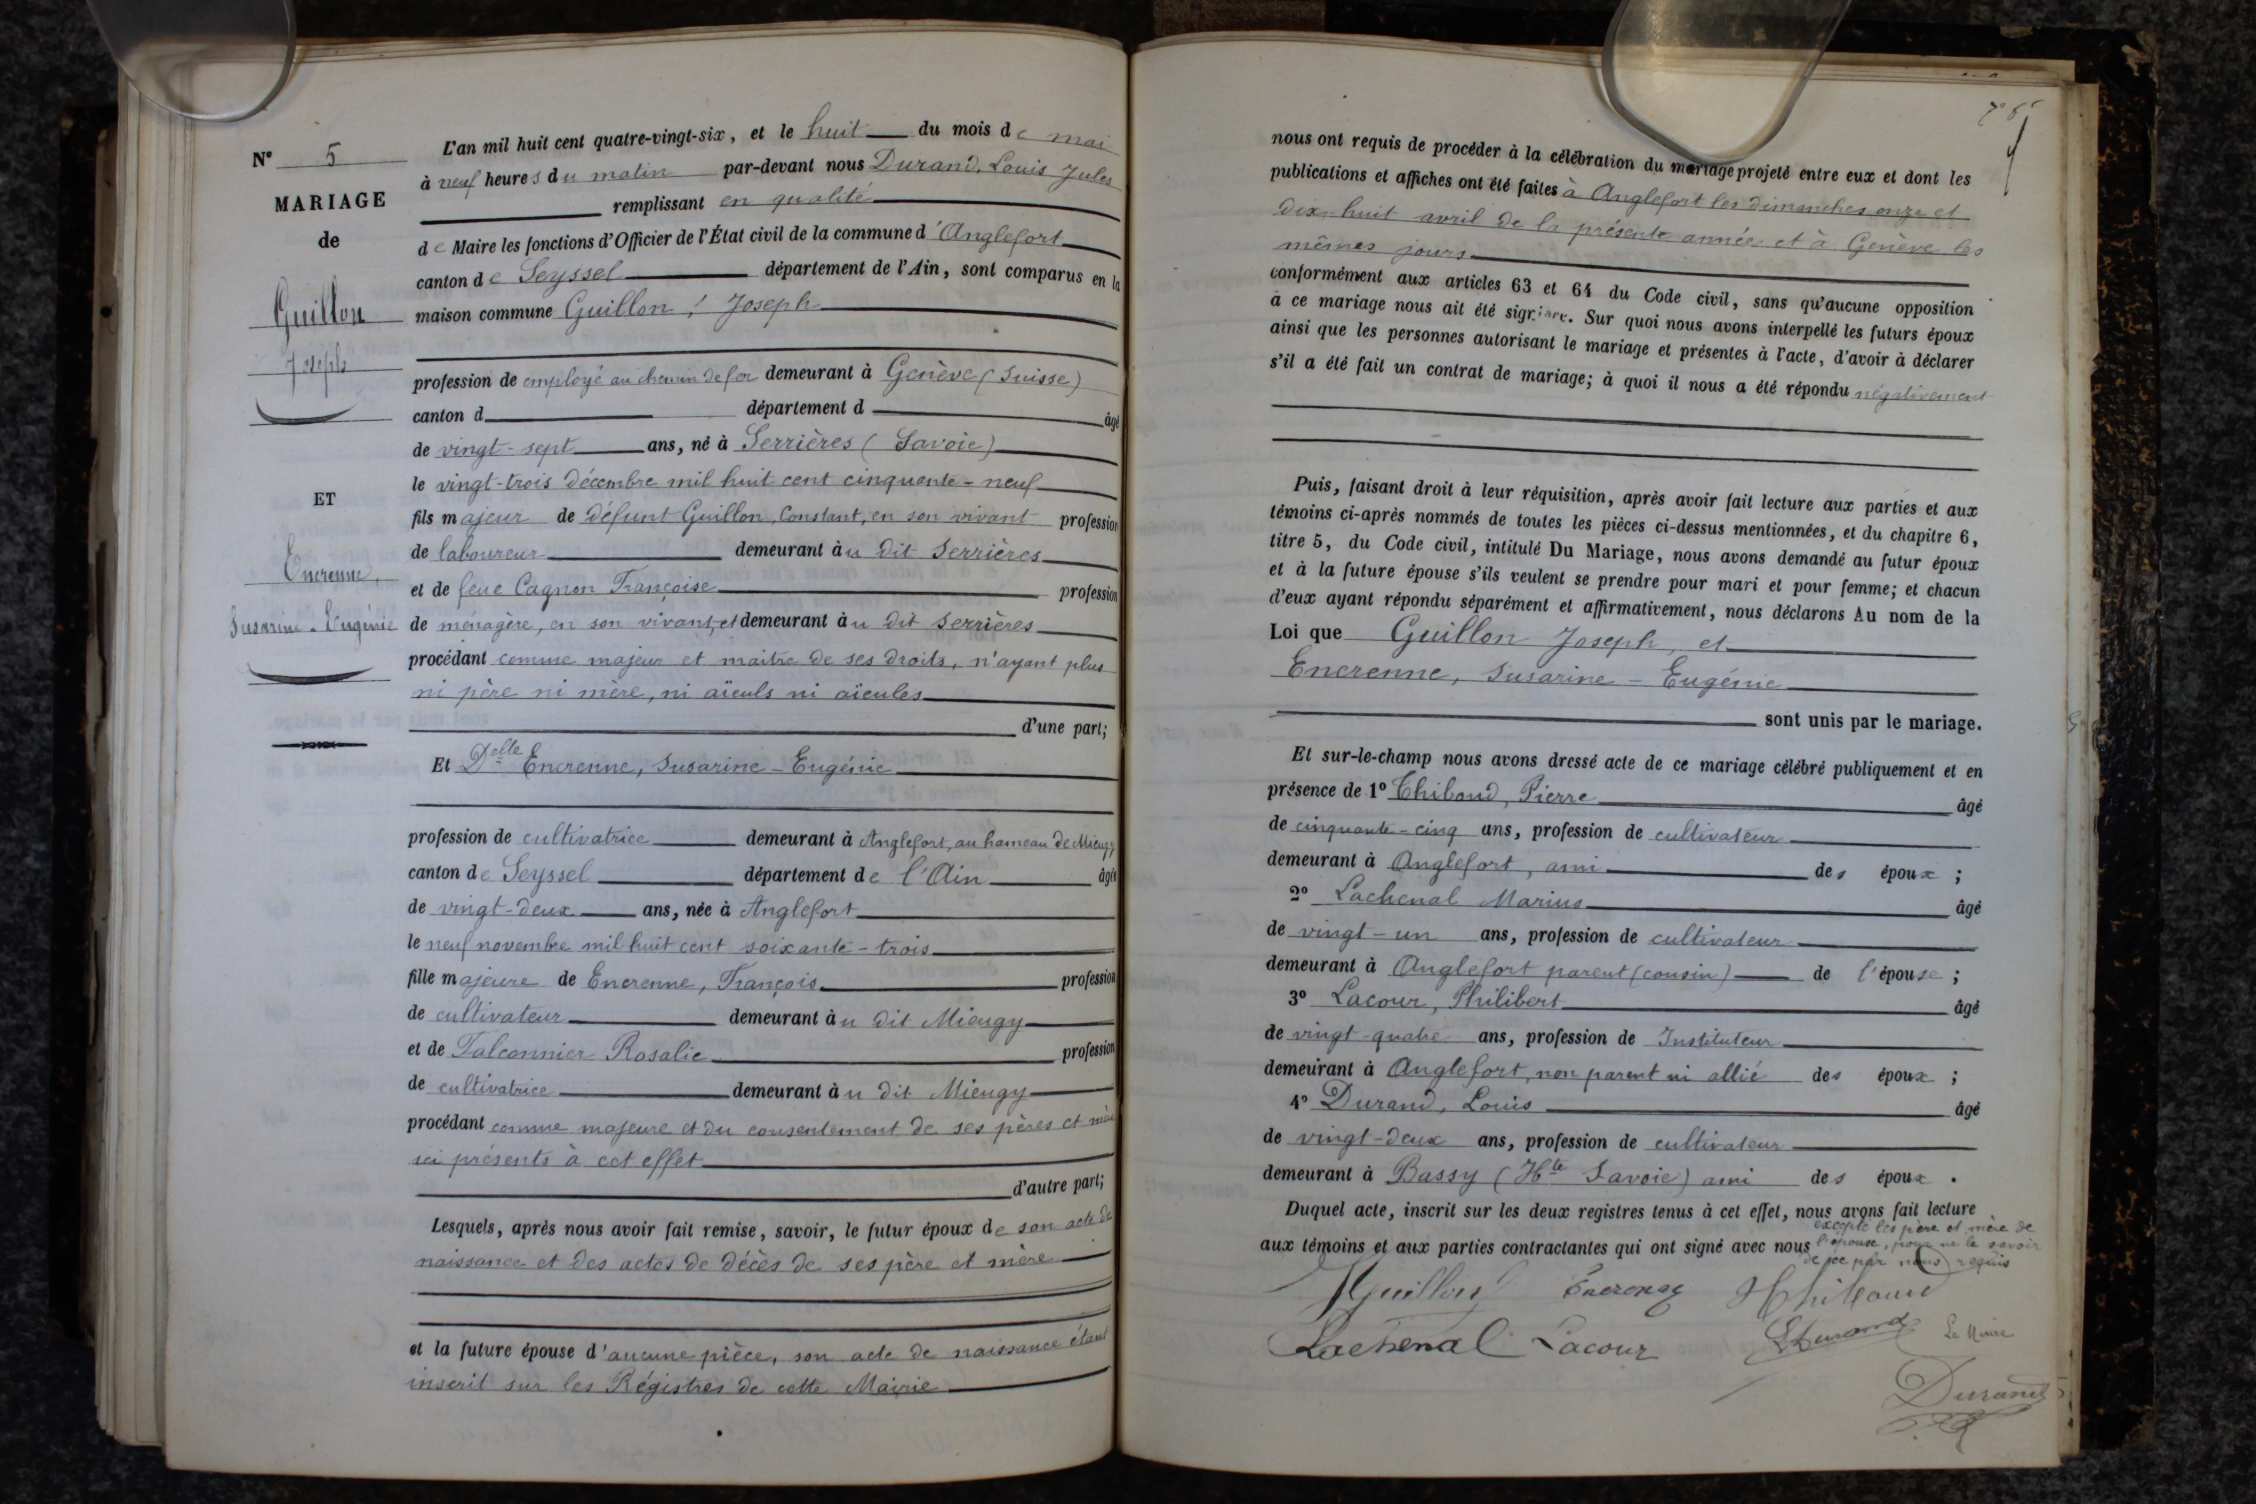 N° 5
MARIAGE
de
Guillon
Joseph
ET
Encrenne,
Susarine - Eugénie
L'an mil huit cent quatre-vingt-six, et le huit du mois de mai
à neuf heures du matin par-devant nous Durand, Louis Jules
remplissant en qualité
de Maire les fonctions d'Officier de l'État civil de la commune d'Anglefort
canton de Seyssel département de l'Ain, sont comparus en la
maison commune Guillon, Joseph
profession de employé au chemin de fer demeurant à Genève (Suisse)
canton d département d âgé
de vingt-sept ans, né à Serrières (Savoie)
le vingt-trois décembre mil huit cent cinquante-neuf
fils majeur de défunt Guillon, Constant, en son vivant profession
de laboureur demeurant àu dit Serrières
et de feue Cagnon Françoise profession
de ménagère, en son vivant, et demeurant àu dit Serrières
procédant comme majeur et maître de ses droits, n'ayant plus
ni père ni mère, ni aïeuls ni aïeules
d'une part;
Et Delle Encrenne, Susarine - Eugénie
profession de cultivatrice demeurant à Anglefort, au hameau de Mieugy
canton de Seyssel département de l'Ain âgée
de vingt-deux ans, née à Anglefort
le neuf novembre mil huit cent soixante-trois
fille majeure de Encrenne, François profession
de cultivateur demeurant àu dit Mieugy
et de Falconnier Rosalie profession
de cultivatrice demeurant àu dit Mieugy
procédant comme majeure et du consentement de ses pères et mère
ici présents à cet effet
d'autre part;
Lesquels, après nous avoir fait remise, savoir, le futur époux de son acte de
naissance et des actes de décès de ses père et mère
et la future épouse d'aucune pièce, son acte de naissance étant
inscrit sur les Régistres de cette Mairie
nous ont requis de procéder à la célébration du mariage projeté entre eux et dont les
publications et affiches ont été faites à Anglefort les dimanches onze et
dix-huit avril de la présente année et à Genève les
mêmes jours
conformément aux articles 63 et 64 du Code civil, sans qu'aucune opposition
à ce mariage nous ait été signifiée. Sur quoi nous avons interpellé les futurs époux
ainsi que les personnes autorisant le mariage et présentes à l'acte, d'avoir à déclarer
s'il a été fait un contrat de mariage; à quoi il nous a été répondu négativement
Puis, faisant droit à leur réquisition, après avoir fait lecture aux parties et aux
témoins ci-après nommés de toutes les pièces ci-dessus mentionnées, et du chapitre 6,
titre 5, du Code civil, intitulé Du Mariage, nous avons demandé au futur époux
et à la future épouse s'ils veulent se prendre pour mari et pour femme; et chacun
d'eux ayant répondu séparément et affirmativement, nous déclarons Au nom de la
Loi que Guillon Joseph, et
Encrenne, Susarine - Eugénie
sont unis par le mariage.
Et sur-le-champ nous avons dressé acte de ce mariage célébré publiquement et en
présence de 1° Thiboud, Pierre âgé
de cinquante-cinq ans, profession de cultivateur
demeurant à Anglefort, ami des époux ;
2° Lachenal Marius âgé
de vingt-un ans, profession de cultivateur
demeurant à Anglefort parent (cousin) de l'épouse ;
3° Lacour, Philibert âgé
de vingt-quatre ans, profession de Instituteur
demeurant à Anglefort, non parent ni allié des époux ;
4° Durand, Louis âgé
de vingt-deux ans, profession de cultivateur
demeurant à Bassy (Hte Savoie) ami des époux .
Duquel acte, inscrit sur les deux registres tenus à cet effet, nous avons fait lecture
aux témoins et aux parties contractantes qui ont signé avec nous excepté les père et mère de
l'épouse, pour ne le savoir
de ce par nous requis
Guillon Encrenne Thiboud
Lachenal Lacour LDurand Le Maire
Durand